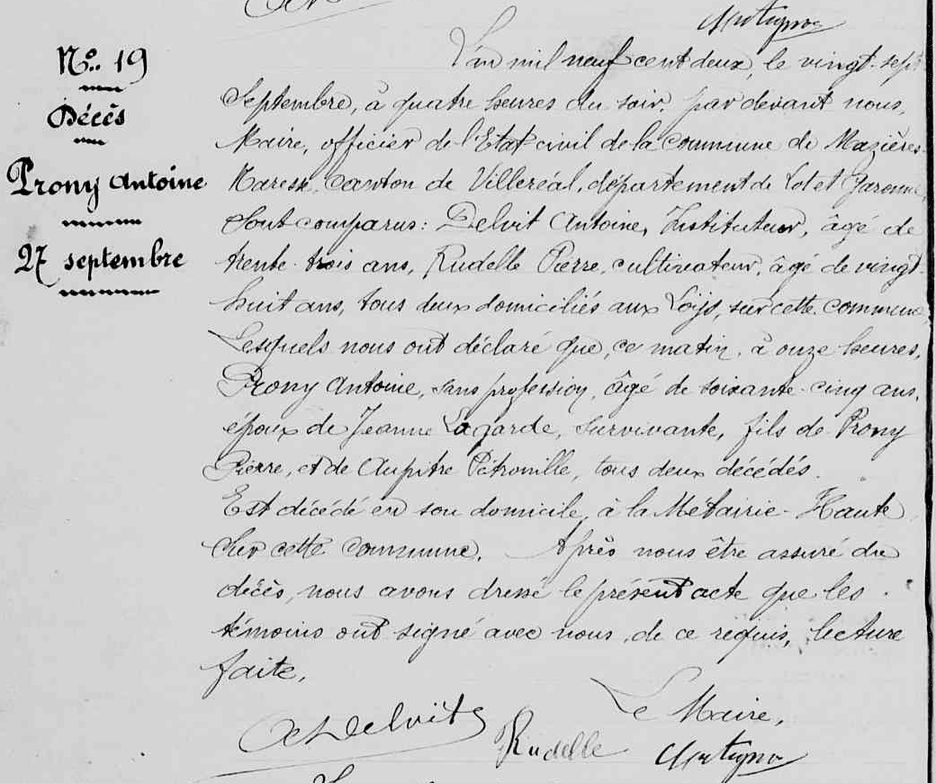 Nº 19
Décès
Prony Antoine
27 septembre
L'an mil neuf cent deux, le vingt-sept
Septembre, à quatre heures du soir, par devant nous,
Maire, officier de l'Etat civil de la commune de Mazières-
Naresse, canton de Villeréal, département de Lot et Garonne
Sont comparus: Delvit Antoine, Instituteur, âgé de
trente-trois ans, Rudelle Pierre, cultivateur, âgé de vingt-
huit ans, tous deux domiciliés aux sur cette commune
Lesquels nous ont déclaré que, ce matin, à onze heures,
Prony Antoine, sans profession, âgé de soixante-cinq ans,
époux de Jeanne Lagarde, survivante, fils de Prony
Pierre, et de Pétronille, tous deux décédés.
Est décédé en son domicile, à la Métairie-Haute
sur cette commune. Après nous être assuré du
décès, nous avons dressé le présent acte que les
témoins ont signé avec nous, de ce requis, lecture
faite.
Le Maire,
Delvit
Rudelle